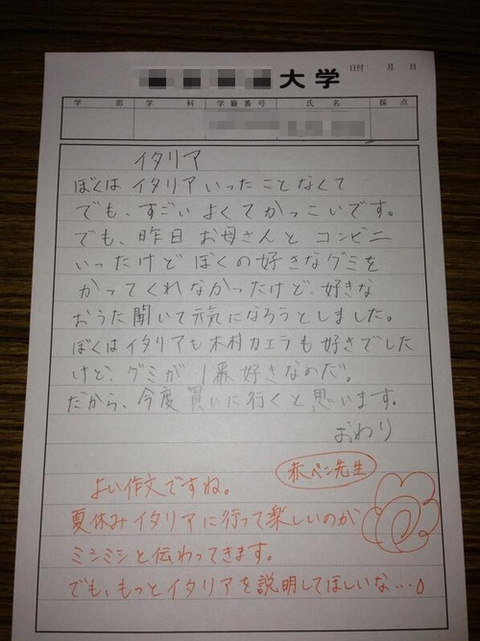 大学
日付 月 日
学部 学科 学籍番号 氏名 採点
イタリア
ぼくはイタリアいったことなくて
でも、すごいよくてかっこいです。
でも、昨日お母さんとコンビニ
いったけどぼくの好きなグミを
かってくれなかったけど、好きな
おうた聞いて元気になろうとしました。
ぼくはイタリアも木村カエラも好きでした
けど、グミが1番好きなのだ。
だから、今度買いに行くと思います。
おわり
赤ペン先生
よい作文ですね。
夏休みイタリアに行って楽しいのが
ミシミシと伝わってきます。
でも、もっとイタリアを説明してほしいな…